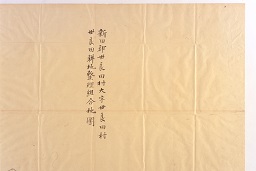 新田郡世良田村大字世良田村
世良田耕地整理組合地圖